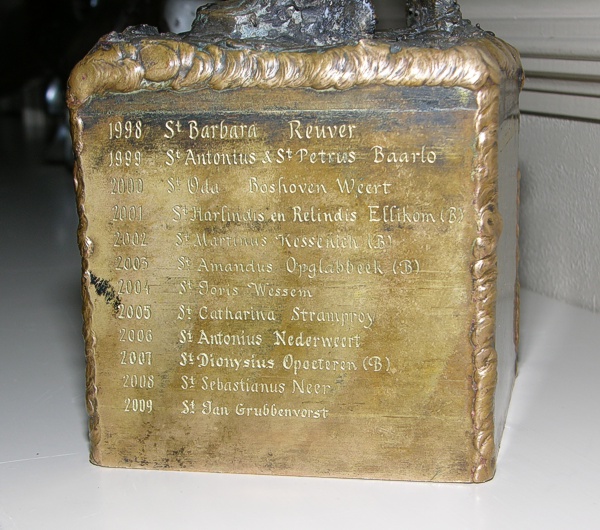 1998 St Barbara Reuver
1999 St Antonius & St Petrus Baarlo
2000 St Oda Boshoven Weert
2001 St Harlindis en Relindis Ellikom (B)
2002 St Martinus Kessenich (B)
2003 St Amandus Opglabbeek (B)
2004 St Joris Wessem
2005 St Catharina Stramproy
2006 St Antonius Nederweert
2007 St Dionysius Opoeteren (B)
2008 St Sebastianus Neer
2009 St Jan Grubbenvorst